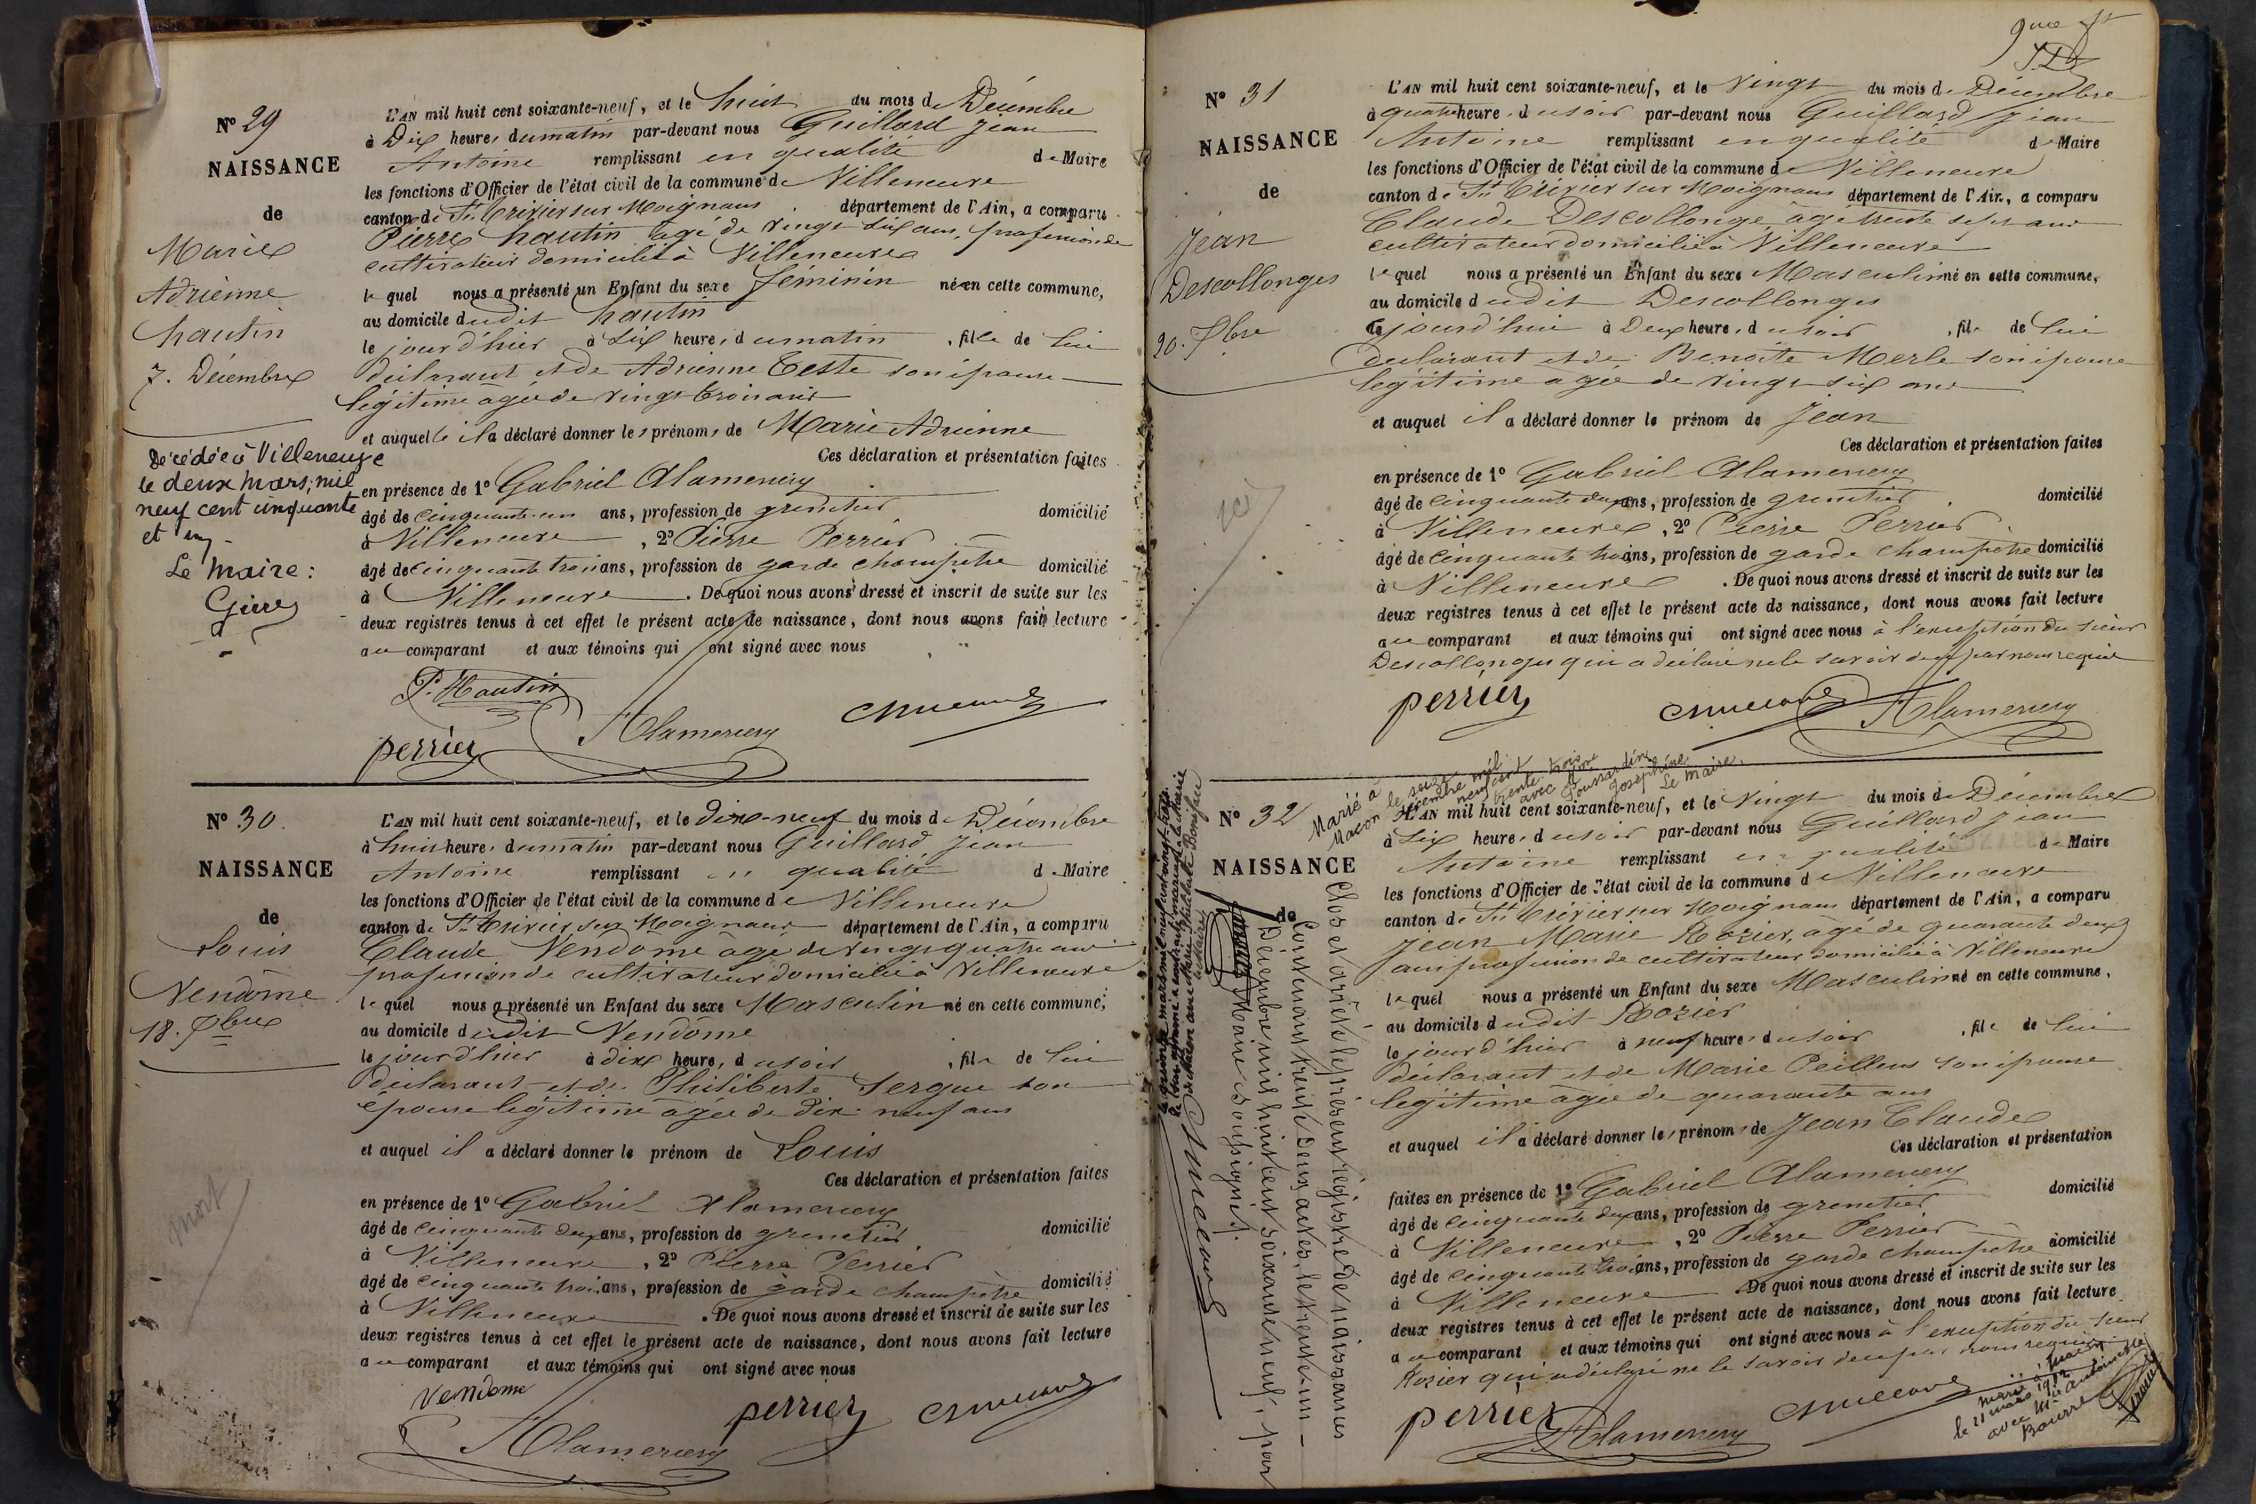 N° 29
NAISSANCE
de
Marie
Adrienne
hautin
7. Décembre
Décédée à Villeneuve
le deux mars, mil
neuf cent cinquante
et un
Le Maire :
L'AN mil huit cent soixante-neuf, et le huit du mois de Décembre
à Dix heures du matin par-devant nous Guillard Jean
Antoine remplissant en qualité de Maire
les fonctions d'Officier de l'état civil de la commune de Villeneuve
canton de St Trivier sur Moignans département de l'Ain, a comparu
Pierre hautin âgé de vingt six ans, profession de
cultivateur domicilié à Villeneuve
lequel nous a présenté un Enfant du sexe féminin né en cette commune,
au domicile dudit hautin
le jour d'hier à Six heures du matin, fille de lui
déclarant et de Adrienne Teste son épouse
légitime âgée de vingt trois ans
et auquelle il a déclaré donner les prénoms de Marie Adrienne
Ces déclaration et présentation faites
en présence de 1° Gabriel Alamercery
âgé de cinquante un ans, profession de grenetier domicilié
à Villeneuve, 2° Pierre Perrier
âgé de cinquante trois ans, profession de garde champêtre domicilié
à Villeneuve. De quoi nous avons dressé et inscrit de suite sur les
deux registres tenus à cet effet le présent acte de naissance, dont nous avons fait lecture
au comparant et aux témoins qui ont signé avec nous
P. Hautin
Alamercery
perrier
N° 30
NAISSANCE
de
Louis
Vendôme
18. Xbre
mort
L'AN mil huit cent soixante-neuf, et le dix-neuf du mois de Décembre
à huit heures du matin par-devant nous Guillard Jean
Antoine remplissant en qualité de Maire
les fonctions d'Officier de l'état civil de la commune de Villeneuve
canton de St Trivier sur Moignans département de l'Ain, a comparu
Claude Vendôme âgé de vingt quatre ans
profession de cultivateur domicilié à Villeneuve
lequel nous a présenté un Enfant du sexe Masculin né en cette commune,
au domicile dudit Vendôme
le jour d'hier à dix heures du soir, fils de lui
déclarant et de Philiberte Sergue son
épouse légitime âgée de dix-neuf ans
et auquel il a déclaré donner le prénom de Louis
Ces déclaration et présentation faites
en présence de 1° Gabriel Alamercery
âgé de cinquante deux ans, profession de grenetier domicilié
à Villeneuve, 2° Pierre Perrier
âgé de cinquante trois ans, profession de garde champêtre domicilié
à Villeneuve. De quoi nous avons dressé et inscrit de suite sur les
deux registres tenus à cet effet le présent acte de naissance, dont nous avons fait lecture
au comparant et aux témoins qui ont signé avec nous
Vendome
perrier
Alamercery
9me
N° 31
NAISSANCE
de
Jean
Descollonges
20. Xbre
L'AN mil huit cent soixante-neuf, et le Vingt du mois de Décembre
à quatre heures du soir par-devant nous Guillard Jean
Antoine remplissant en qualité de Maire
les fonctions d'Officier de l'état civil de la commune de Villeneuve
canton de St Trivier sur Moignans département de l'Ain, a comparu
Claude Descollonge âgé trente sept ans
cultivateur domicilié à Villeneuve
lequel nous a présenté un Enfant du sexe Masculin né en cette commune,
au domicile dudit Descollonges
Ce jourd'hui à Deux heures du soir, fils de lui
déclarant et de Benoite Merle son épouse
légitime âgée de vingt six ans
et auquel il a déclaré donner le prénom de Jean
Ces déclaration et présentation faites
en présence de 1° Gabriel Alamercery
âgé de cinquante deux ans, profession de grenetier domicilié
à Villeneuve, 2° Pierre Perrier
âgé de cinquante trois ans, profession de garde champêtre domicilié
à Villeneuve. De quoi nous avons dressé et inscrit de suite sur les
deux registres tenus à cet effet le présent acte de naissance, dont nous avons fait lecture
au comparant et aux témoins qui ont signé avec nous à l'exception du sieur
Descollonges qui a déclaré ne le savoir de ce par nous requis
perrier
Alamercery
N° 32
NAISSANCE
de
Marié à
Macon le seize
décembre mil
neuf cent
trente trois
avec
Joséphine
Le Maire,
L'AN mil huit cent soixante-neuf, et le Vingt du mois de Décembre
à Six heures du soir par-devant nous Guillard Jean
Antoine remplissant en qualité de Maire
les fonctions d'Officier de l'état civil de la commune de Villeneuve
canton de St Trivier sur Moignans département de l'Ain, a comparu
Jean Marie Rozier, âgé de quarante deux
ans profession de cultivateur domicilié à Villeneuve
lequel nous a présenté un Enfant du sexe Masculin né en cette commune,
au domicile dudit Rozier
le jour d'hier à neuf heures du soir, fils de lui
déclarant et de Marie Peilleux son épouse
légitime âgée de quarante ans
et auquel il a déclaré donner les prénoms de Jean Claude
Ces déclaration et présentation
faites en présence de 1° Gabriel Alamercery
âgé de cinquante deux ans, profession de grenetier domicilié
à Villeneuve, 2° Pierre Perrier
âgé de cinquante trois ans, profession de garde champêtre domicilié
à Villeneuve De quoi nous avons dressé et inscrit de suite sur les
deux registres tenus à cet effet le présent acte de naissance, dont nous avons fait lecture
au comparant et aux témoins qui ont signé avec nous à l'exception du sieur
Rozier qui a déclaré ne le savoir de ce par nous requis
perrier
Alamercery
Marié à
le 21 mars 19
avec Mie Antoinette
Bourre
Clos et arrêté le présent régistre de naissances
Contenant trente Deux actes, le trente-un
Décembre mil huit cent soixante neuf, par
Maire soussigné.